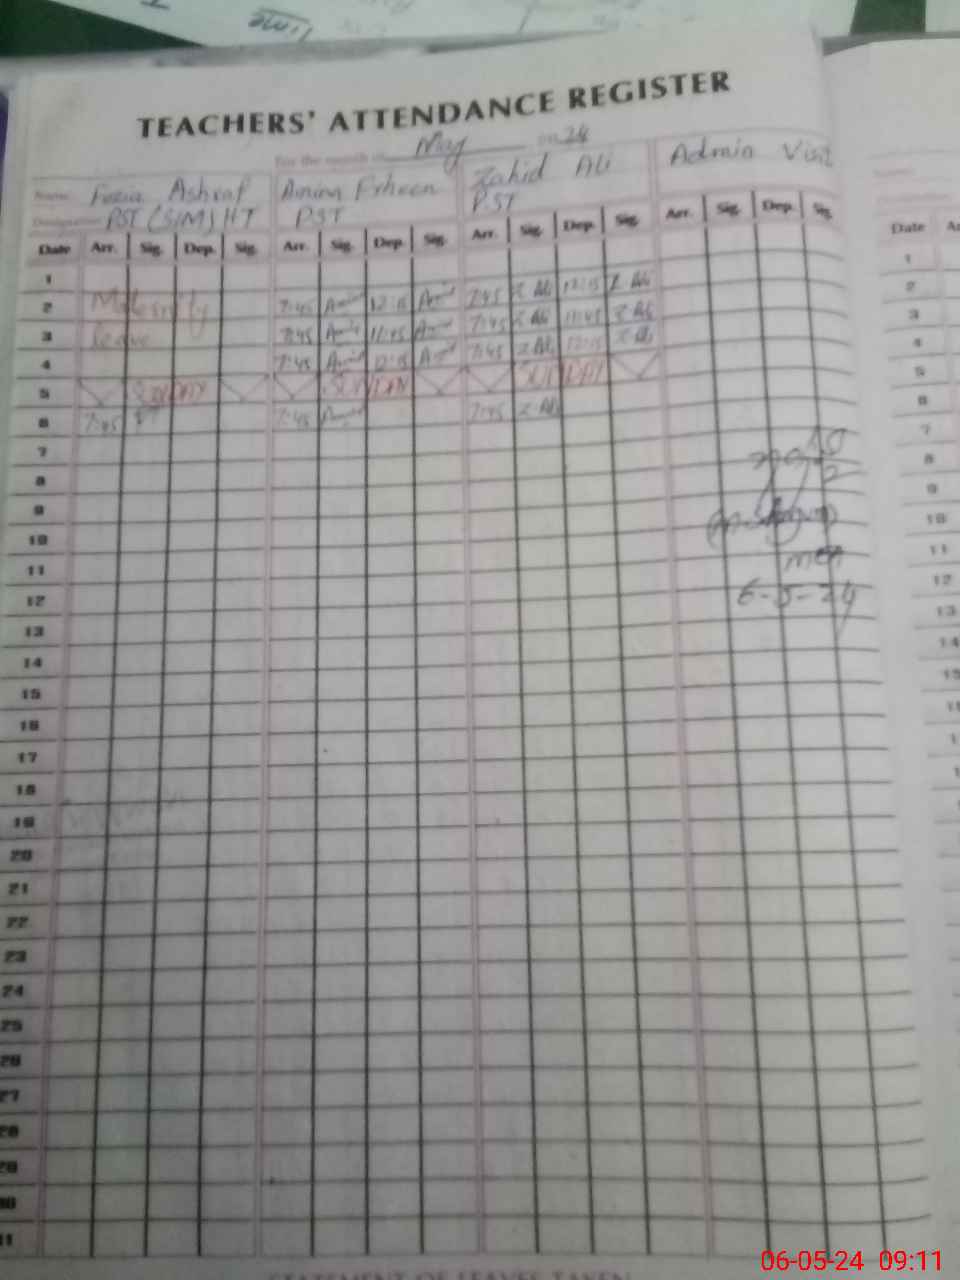 Time
TEACHERS' ATTENDANCE REGISTER
For the month of May 2024
Name Fozia Ashraf Amina Zahid Ali Admin Visit
Designation PST (SIM) HT PST PST
Date Arr. Sig. Dep. Sig. Arr. Sig. Dep. Sig. Arr. Sig. Dep. Sig. Arr. Sig. Dep. Sig. Date
1 1
2 Maternity 7:45 12:15 7:45 Z Ali 12:15 Z Ali 2
3 leave 7:45 11:45 7:45 Z Ali 11:45 Z Ali 3
4 7:45 12:15 7:45 Z Ali 12:15 Z Ali 4
5 SUNDAY SUNDAY SUNDAY 5
6 7:45 7:45 7:45 Z Ali 6
7 7
8 8
9 9
10 10
11 11
MEA
12 6-5-24 12
13 13
14 14
15 15
16
17
18
19
20
21
22
23
24
25
26
27
28
29
30
31
STATEMENT OF LEAVES TAKEN
06-05-24 09:11